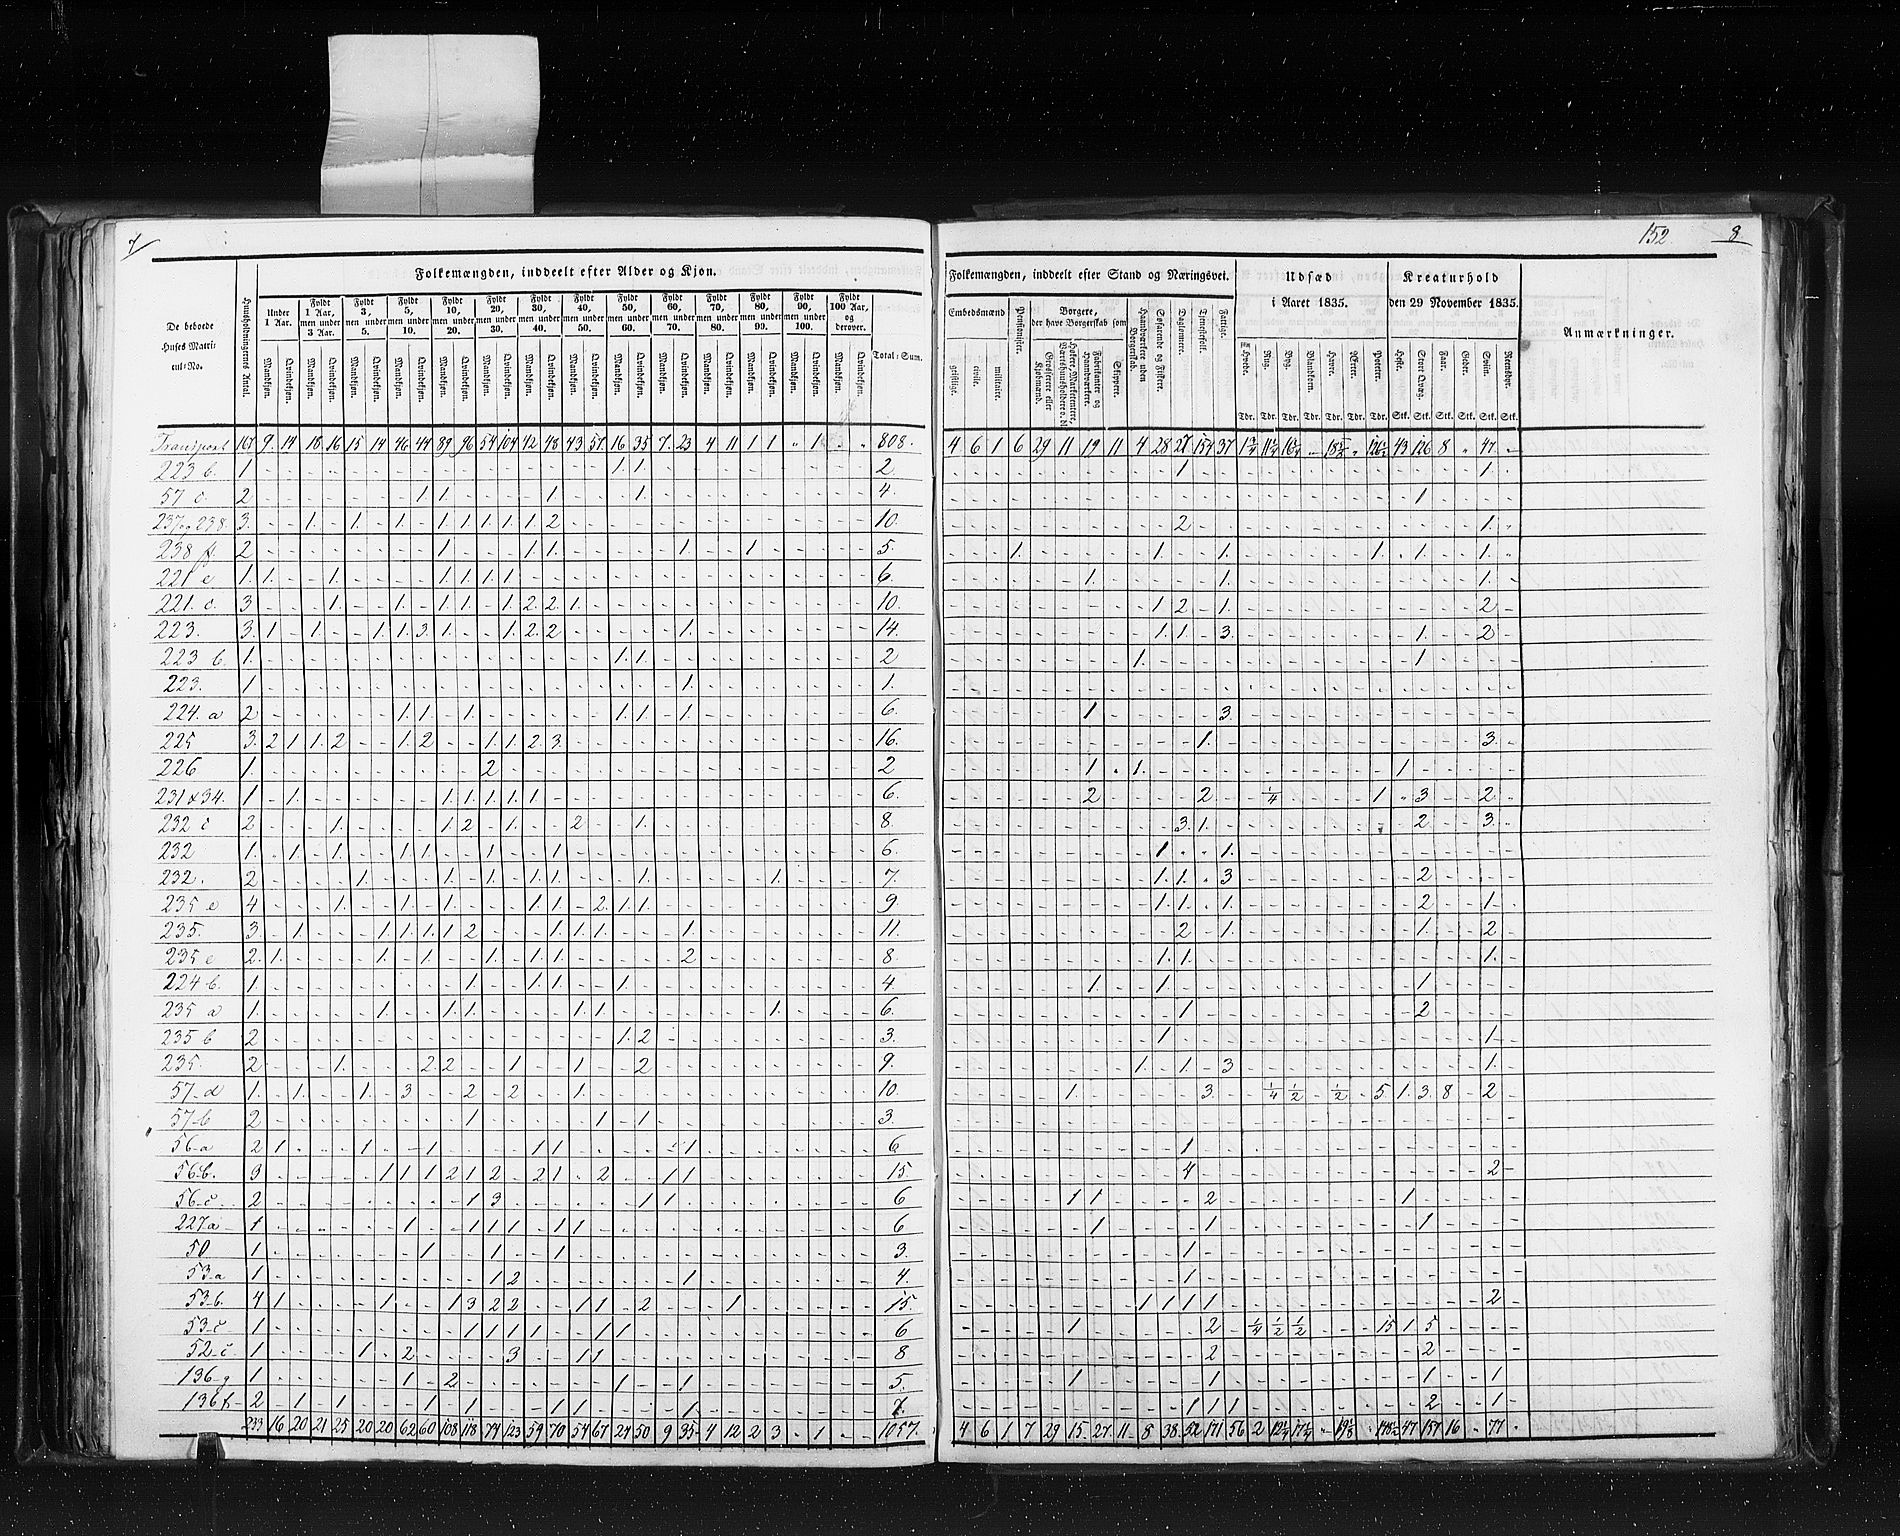 7
Folkemængden, inddeelt efter Alder og Kjøn.
De beboede Huses Matricul-No.
Huusholdningernes Antal.
Under 1 Aar.
Fyldt 1 Aar, men under 3 Aar.
Fyldt 3, men under 5.
Fyldt 5, men under 10.
Fyldt 10, men under 20.
Fyldt 20, men under 30.
Fyldt 30, men under 40.
Fyldt 40, men under 50.
Fyldt 50, men under 60.
Fyldt 60, men under 70.
Fyldt 70, men under 80.
Fyldt 80, men under 90.
Fyldt 90, men under 100.
Fyldt 100 Aar, og derover.
Mandkjøn. Qvindekjøn.
Total-Sum.
Transport 167 9 14 18 16 15 14 46 44 89 96 54 104 42 48 43 57 16 35 7 23 4 11 1 1 " 1 " " 808.
223 b. 1 1 1 2.
57 c. 2 1 1 1 1 4.
237 og 238. 3. 1 1 1 1 1 1 1 1 2 10.
238 f. 2 1 1 1 1 1 5.
221 e 1. 1. 1. 1 1 1 1 6.
221. c. 3 1. 1. 1 1 1. 2. 2. 1. 10.
223. 3. 1 1. 1. 1. 3. 1. 1. 2. 2 1. 14.
223 b. 1. 1. 1. 2
223. 1 1. 1.
224. a 2 1. 1. 1. 1. 1. 1. 6.
225 3. 2 1 1. 2 1. 2 1. 1. 2. 3. 16.
226 1. 2 2
231 & 34. 1 1. 1. 1. 1. 1. 1 6.
232 c 2 1. 1. 2 1. 2 1. 8.
232 1. 1. 1. 1. 1. 1. 1. 6.
232. 2 1. 1. 1. 1. 1. 1. 1. 7.
235 e 4 1. 1. 1. 1. 1. 2. 1. 1. 9.
235. 3 1. 1. 1. 1. 1. 2 1. 1. 1. 1. 11.
235 e 2. 1. 1. 1. 1. 1. 1. 2 8.
224 b. 1. 1. 1. 1. 1. 4.
235 a 1. 1. 1. 1. 1. 1. 1. 6.
235 b 2 1. 2 3.
235. 2 1. 2. 2 1 1 2 9.
57-d 1. 1. 1. 3 2 2 1. 10.
57-b 2 1. 1 1. 3.
56-a 2 1 1 1 1 1 1 6
56-b. 3 1 1 1 2 1 2 2 1 2 1 1 15.
56-c. 2 1 3 1 1 6
227a 1 1 1 1 1 1 1 6
50 1 1 1 1 3.
53-a 1 1 2 1 4.
53-b. 4 1 1 1 3 2 2 1 1 2 1 15.
53-c 1 1 1 1 1 1 1 6
52-c 1 1 2 3 1 1 8
136-g 1 1 2 1 1 5.
136 f 2 1 1 1 1 1 1 1 7.
233 16 20 21 25 20 20 62 60 108 118 74 123 59 70 54 67 27 50 9 35 4 12 2 3 " 1 1057.
152 8
Folkemængden, inddeelt efter Stand og Næringsvei.
Embedsmænd
geistlige. civile. militaire.
Pensionister.
Borgere, der have Borgerskab som
Grosserere eller Kjøbmænd.
Høkere, Marketentere, Værtshuusholdere o. dl.
Fabrikanter og Haandværkere.
Skippere.
Haandværkere uden Borgerskab.
Søfarende og Fiskere.
Daglønnere.
Tjenestefolk.
Fattige.
Udsæd i Aaret 1835.
Hvede. Rug. Byg. Blandkorn. Havre. Erter. Poteter.
Tdr. Tdr. Tdr. Tdr. Tdr. Tdr. Tdr.
Kreaturhold den 29 November 1835.
Heste. Stort Qvæg. Faar. Geder. Sviin. Rensdyr.
Stk. Stk. Stk. Stk. Stk. Stk.
Anmærkninger.
4 6 1 6 29 11 19 11 4 28 27 154 37 43 126 8 " 47
1 1.
1
2 1.
1. 1 1. 1 1. 1.
1. 1. 1.
1. 2 1. 2
1. 1. 3. 1. 2
1. 1
1 3.
1. 3.
1 1. 1
2 2 1/4 1 3 2
3. 1. 2 3.
1 1.
1. 1. 3 2
1. 1. 1. 2 1.
2 1. 1. 2.
1. 1. 1.
1 1. 1
1 2
1 1
1. 1. 3 1.
1. 3. 1/4 1/2 1/2 5. 1. 3. 8 2
1
4 2
1 1 2 1
1 1 1
1
1
1 1 1 1 2
1 2 1/4 1/2 1/2 15 1 5
2 2
1 1 1 1
1 1 1 2 1
4 6 1 7 29 15. 27. 11 8 38. 52 171 56 2 47 157 16 " 77